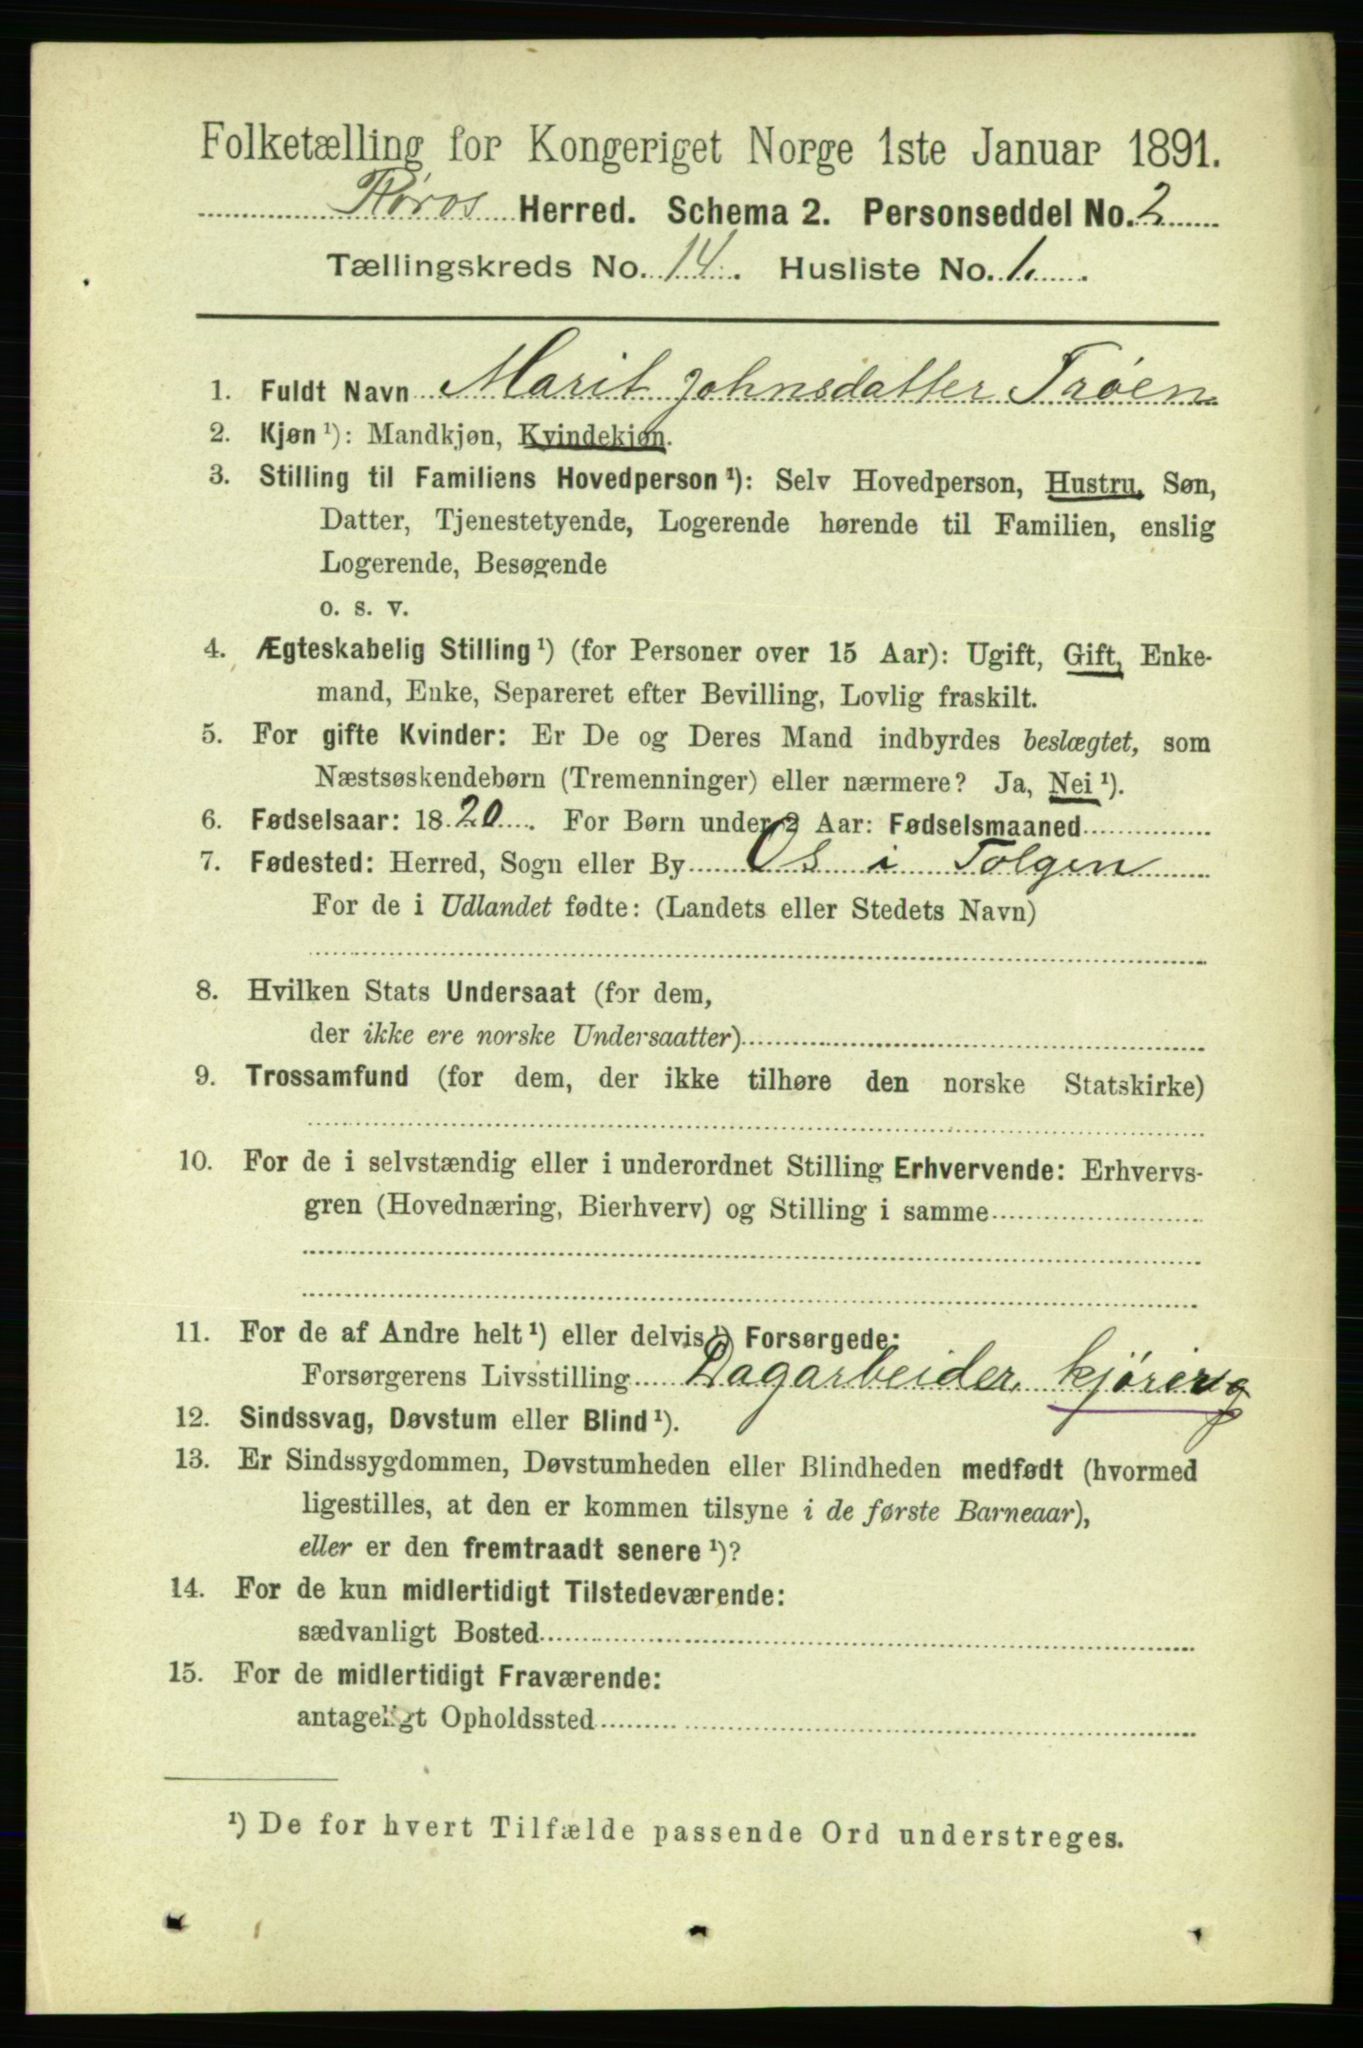 Folketælling for Kongeriget Norge 1ste Januar 1891.
Røros Herred. Schema 2. Personseddel No. 2
Tællingskreds No. 14. Husliste No. 1.
1. Fuldt Navn Marit Johnsdatter Trøen
2. Kjøn ¹): Mandkjøn, Kvindekjøn.
3. Stilling til Familiens Hovedperson ¹): Selv Hovedperson, Hustru, Søn,
Datter, Tjenestetyende, Logerende hørende til Familien, enslig
Logerende, Besøgende
o. s. v.
4. Ægteskabelig Stilling ¹) (for Personer over 15 Aar): Ugift, Gift, Enke-
mand, Enke, Separeret efter Bevilling, Lovlig fraskilt.
5. For gifte Kvinder: Er De og Deres Mand indbyrdes beslægtet, som
Næstsøskendebørn (Tremenninger) eller nærmere? Ja, Nei ¹).
6. Fødselsaar: 1820. For Børn under 2 Aar: Fødselsmaaned
7. Fødested: Herred, Sogn eller By Os i Tolgen
For de i Udlandet fødte: (Landets eller Stedets Navn)
8. Hvilken Stats Undersaat (for dem,
der ikke ere norske Undersaatter)
9. Trossamfund (for dem, der ikke tilhøre den norske Statskirke)
10. For de i selvstændig eller i underordnet Stilling Erhvervende: Erhvervs-
gren (Hovednæring, Bierhverv) og Stilling i samme
11. For de af Andre helt ¹) eller delvis ¹) Forsørgede:
Forsørgerens Livsstilling Dagarbeider, kjøring
12. Sindssvag, Døvstum eller Blind ¹).
13. Er Sindssygdommen, Døvstumheden eller Blindheden medfødt (hvormed
ligestilles, at den er kommen tilsyne i de første Barneaar),
eller er den fremtraadt senere ¹)?
14. For de kun midlertidigt Tilstedeværende:
sædvanligt Bosted
15. For de midlertidigt Fraværende:
antageligt Opholdssted
¹) De for hvert Tilfælde passende Ord understreges.